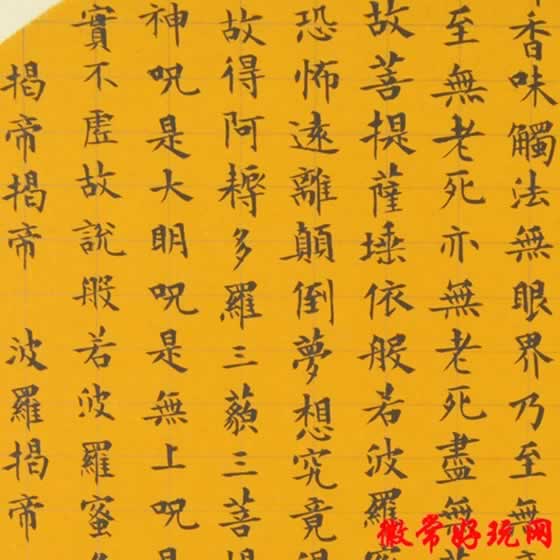 香味觸法無眼界乃至無
至無老死亦無老死盡無
故菩提薩埵依般若波羅
恐怖遠離顛倒夢想究竟
故得阿耨多羅三藐三菩提
神呪是大明呪是無上呪是
實不虛故說般若波羅蜜
揭帝揭帝 波羅揭帝
徽常好玩网